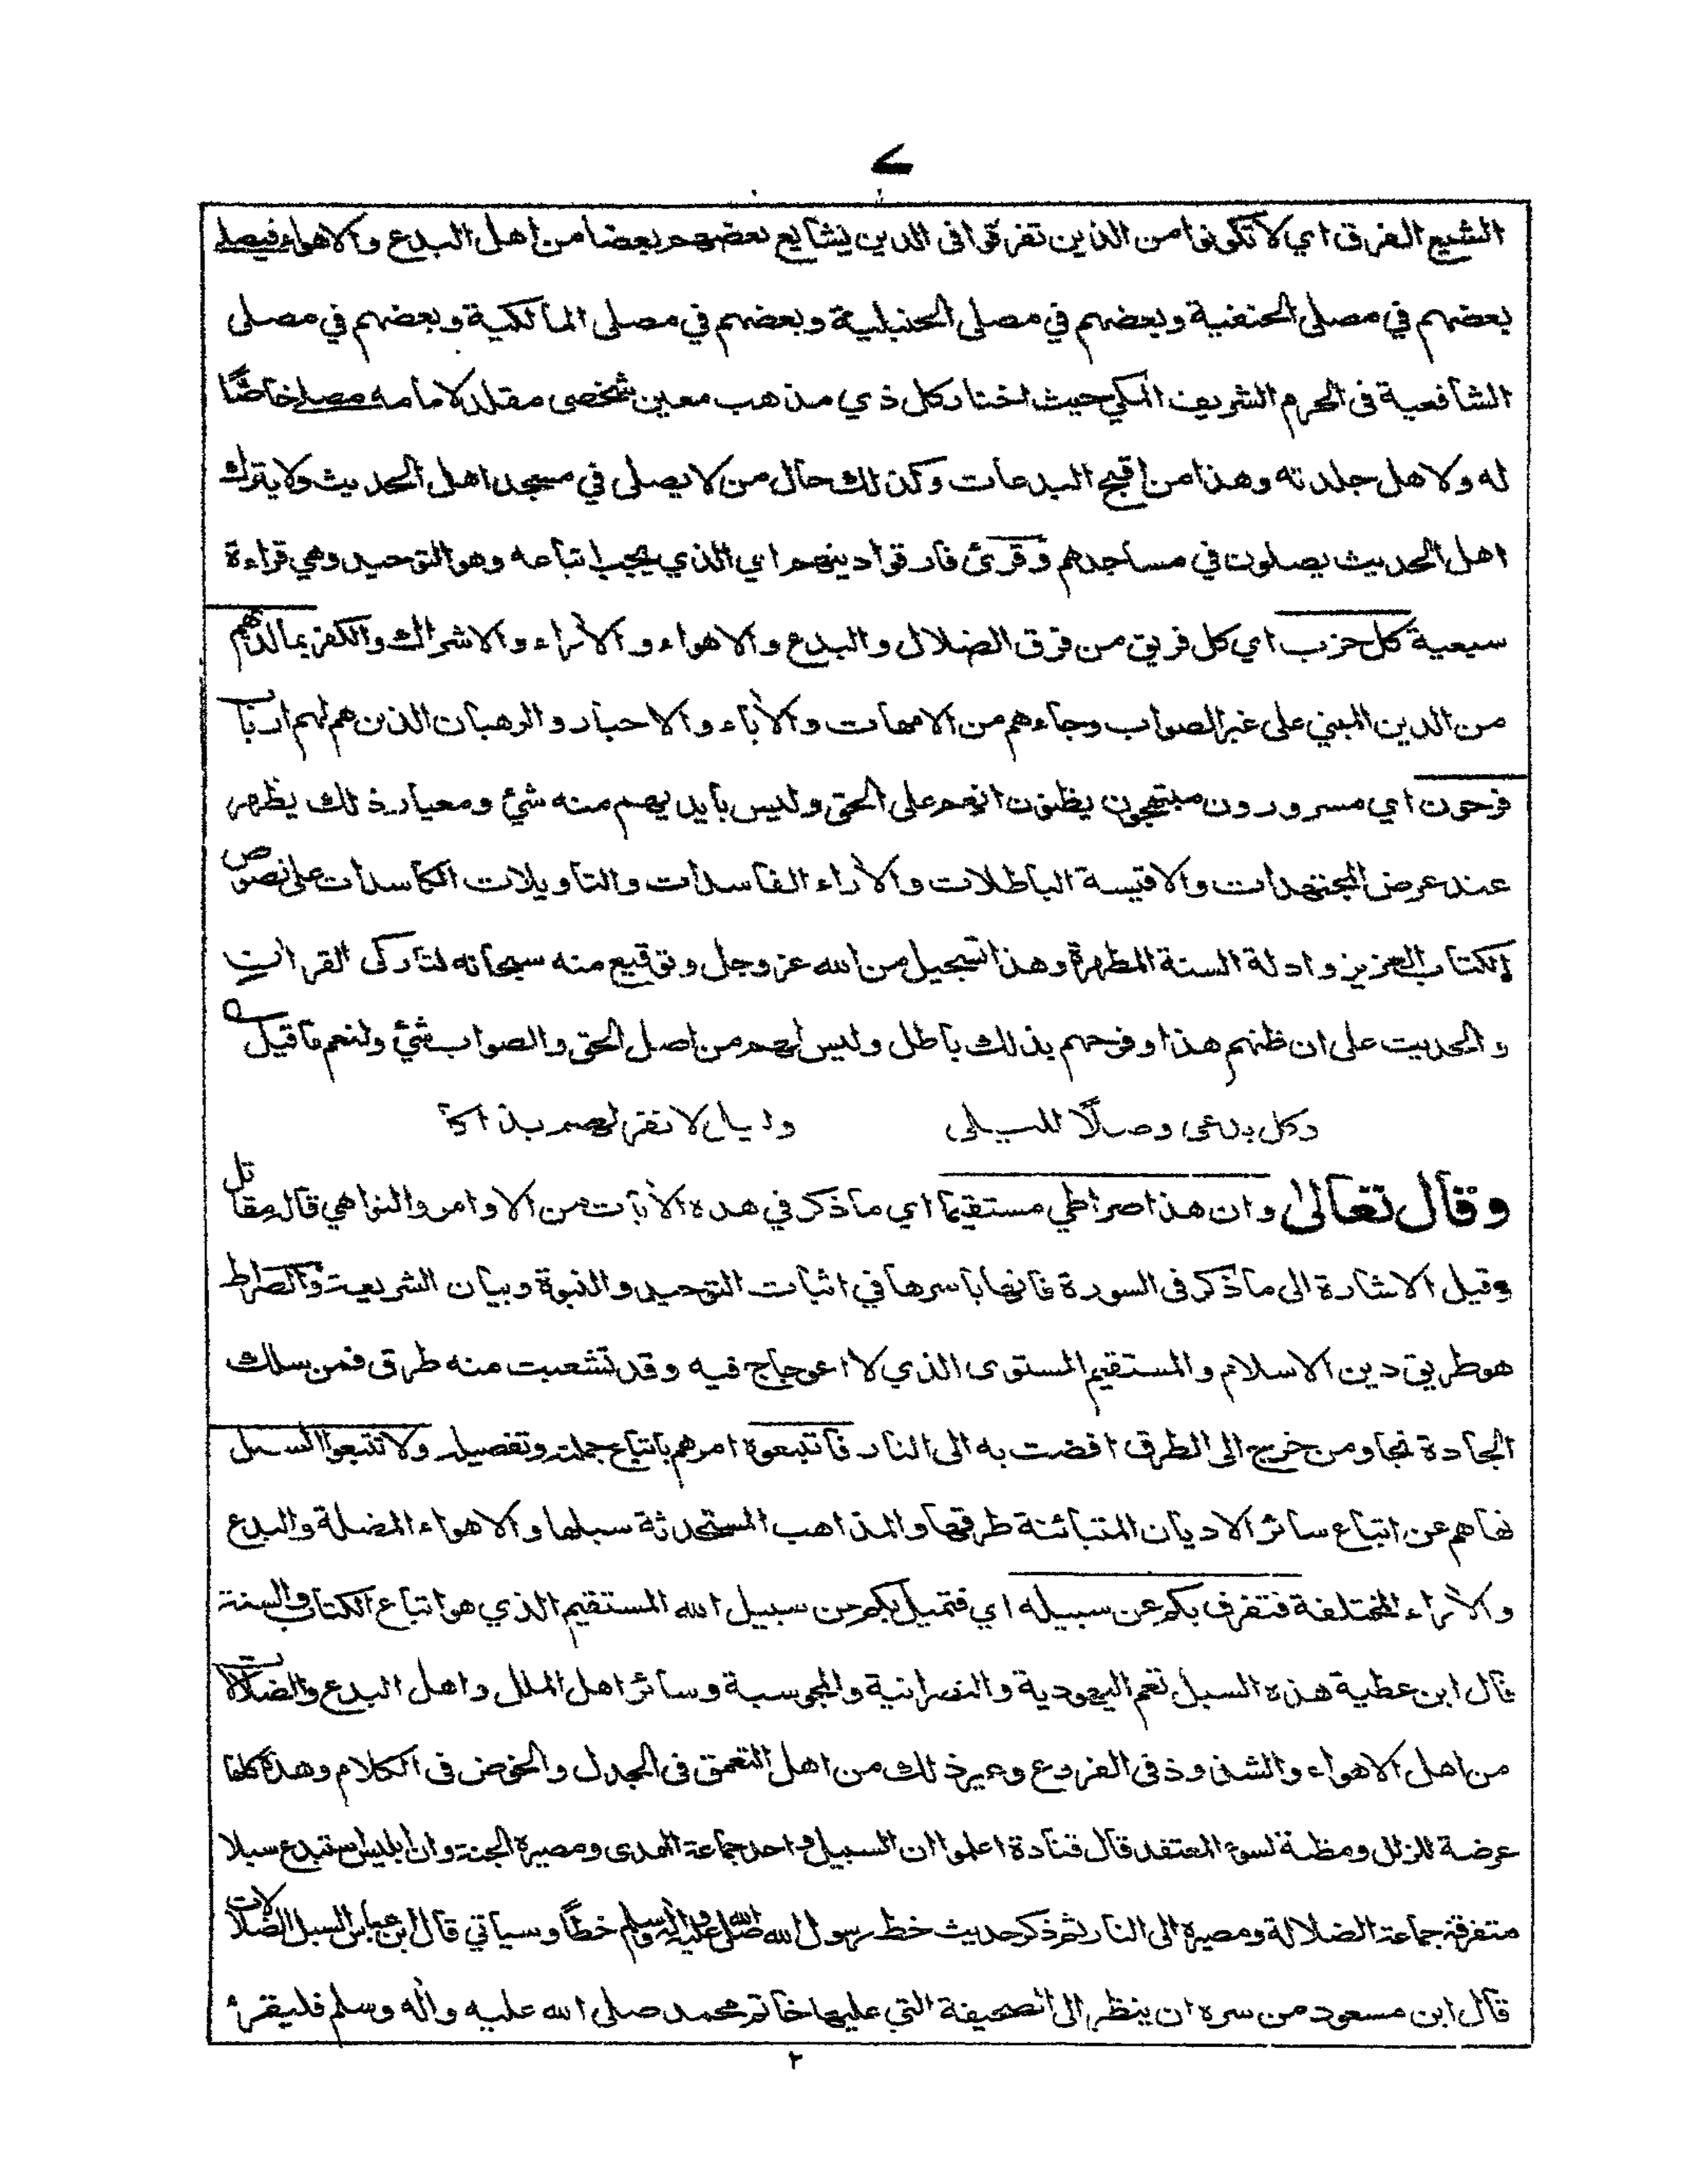 ٧
الشيع الفرق اي لا تكونوا من الذين تفرقوا فى الدين يشايع بعضهم بعضا من اهل البدع والاهواء فيصلي
بعضهم في مصلى الحنفية وبعضهم في مصلى الحنبلية وبعضهم في مصلى المالكية وبعضهم في مصلى
الشافعية فى الحرم الشريف المكي حيث اختار كل ذي مذهب معين شخصى مقلد لامامه مصلے خاصًّا
له ولاهل جلدته وهذا من اقبح البدعات وكذلك حال من لا يصلى في مسجد اهل الحديث ولا يترك
اهل الحديث يصلون في مساجدهم وقرئ فارقوا دينهم اي الذي يجب اتباعه وهو التوحيد وهي قراءة
سبعية كل حزب اي كل فريق من فرق الضلال والبدع والاهواء والأراء والاشراك والكفر بما لديهم
من الدين المبني على غير الصواب وجاءهم من الامهات والأباء والاحبار والرهبان الذين هم لهم ارباب
فرحون اي مسرورون مبتهجون يظنون انهم على الحق وليس بايديهم منه شئ ومعيار ذلك يظهر
عند عرض المجتهدات والاقيسة الباطلات والأراء الفاسدات والتاويلات الكاسدات على نصوص
الكتاب العزيز وادلة السنة المطهرة وهذا تسجيل من الله عز وجل وتوقيع منه سبحانه لتاركى القرآن
والحديث على ان ظنهم هذا وفرحهم بذلك باطل وليس لهم من اصل الحق والصواب شئ ولنعم ما قيل ه
وكل يدعى وصلًا لليلى وليلى لا تقر لهم بذاكا
وقال تعالى وان هذا صراطي مستقيما اي ما ذكر في هذه الأيات من الاوامر والنواهي قاله مقاتل
وقيل الاشارة الى ما ذكر فى السورة فانها باسرها في اثبات التوحيد والنبوة وبيان الشريعة والصراط
هو طريق دين الاسلام والمستقيم المستوى الذي لا اعوجاج فيه وقد تشعبت منه طرق فمن سلك
الجادة نجا ومن خرج الى الطرق افضت به الى النار فاتبعوه امرهم باتباع جملته وتفصيله ولا تتبعوا السبل
نهاهم عن اتباع سائر الاديان المتبائنة طرقها والمذاهب المستحدثة سبلها والاهواء المضلة والبدع
والأراء المختلفة فتفرق بكم عن سبيله اي فتميل بكم عن سبيل الله المستقيم الذي هو اتباع الكتاب والسنة
قال ابن عطية هذه السبل تعم اليهودية والنصرانية والمجوسية وسائر اهل الملل واهل البدع والضلالات
من اهل الاهواء والشذوذ فى الفروع وغير ذلك من اهل التعمق فى الجدل والخوض فى الكلام وهذه كلها
عرضة للزلل ومظنة لسوء المعتقد قال قتادة اعلموا ان السبيل واحد جماعة الهدى ومصيره الجنة وان ابليس استبدع سبلا
متفرقة جماعة الضلالة ومصيره الى النار ثم ذكر حديث خط رسول الله صلى الله عليه وآله وسلم خطًّا وسياتي قال ابن عباس السبل الضلالات
قال ابن مسعود من سره ان ينظر الى الصحيفة التي عليها خاتم محمد صلى الله عليه وأله وسلم فليقرء
٢